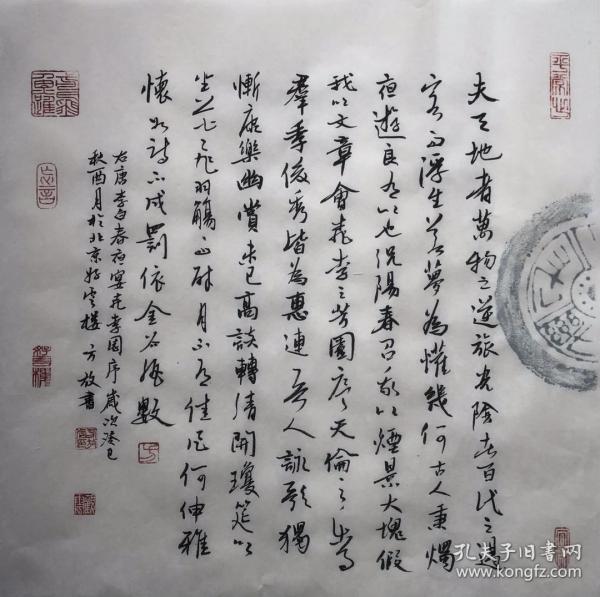 夫天地者萬物之逆旅光陰者百代之過
客而浮生若夢為懽幾何古人秉燭
夜遊良有以也況陽春召我以煙景大塊假
我以文章會桃李之芳園序天倫之樂事
羣季俊秀皆為惠連吾人詠歌獨
慚康樂幽賞未已高談轉清開瓊筵以
坐花飛羽觴而醉月不有佳作何伸雅
懷如詩不成罰依金谷酒數
右唐李白春夜宴桃李園序歲次癸巳
秋酉月於北京樓方放書
忘言
孔夫子旧书网
www.kongfz.com